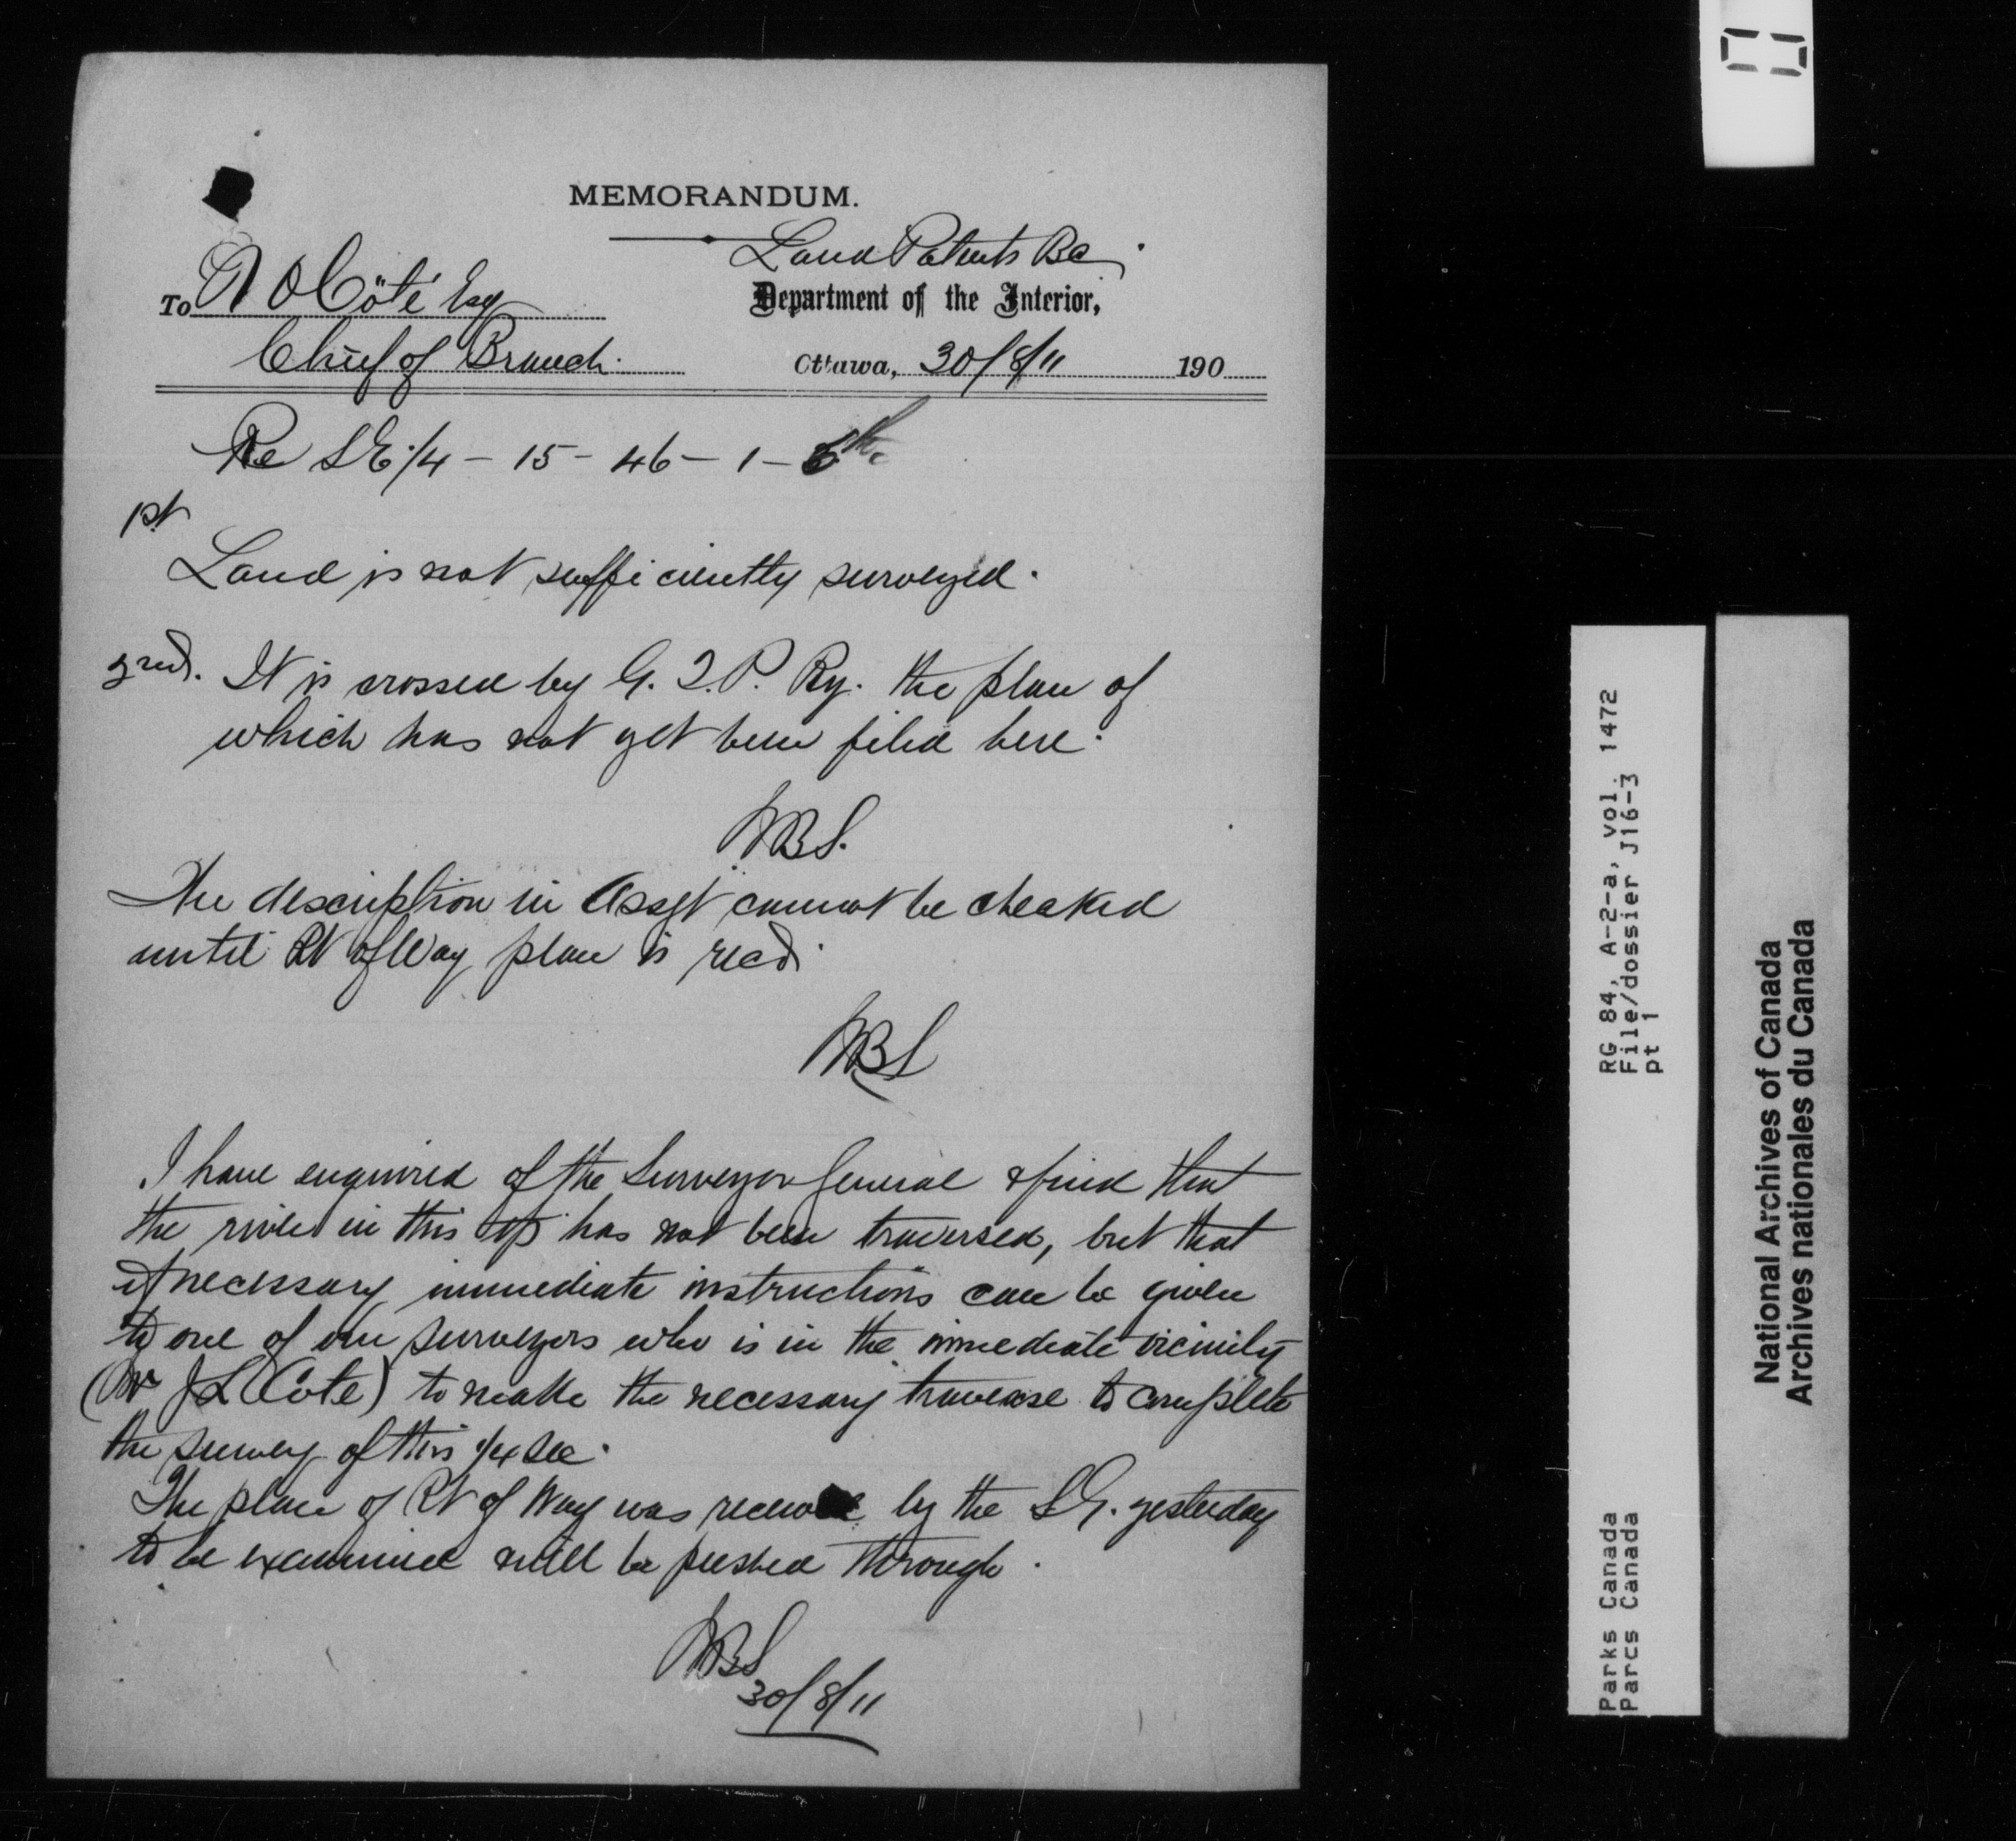 MEMORANDUM.
Land Patents Br.
To N O Côté Esq
Department of the Interior,
Chief of Branch.
Ottawa, 30/8/11 190
Re S E 1/4 - 15 - 46 - 1 - 6th.
1st
Land is not sufficiently surveyed.
2nd. It is crossed by G. T. P. Ry. the plan of
which has not yet been filed here.
The description in Assgt cannot be checked
until Rt of Way plan is recd.
I have enquired of the Surveyor General & find that
the river in this tp has not been traversed, but that
if necessary immediate instructions can be given
to one of our surveyors who is in the immediate vicinity
(Mr J L Cote) to make the necessary traverse to complete
the survey of this 1/4 sec.
The plan of Rt of Way was received by the S G. yesterday
to be examined will be pushed through.
30/8/11
RG 84, A-2-a, vol. 1472
File/dossier J16-3
pt 1
Parks Canada
Parcs Canada
National Archives of Canada
Archives nationales du Canada